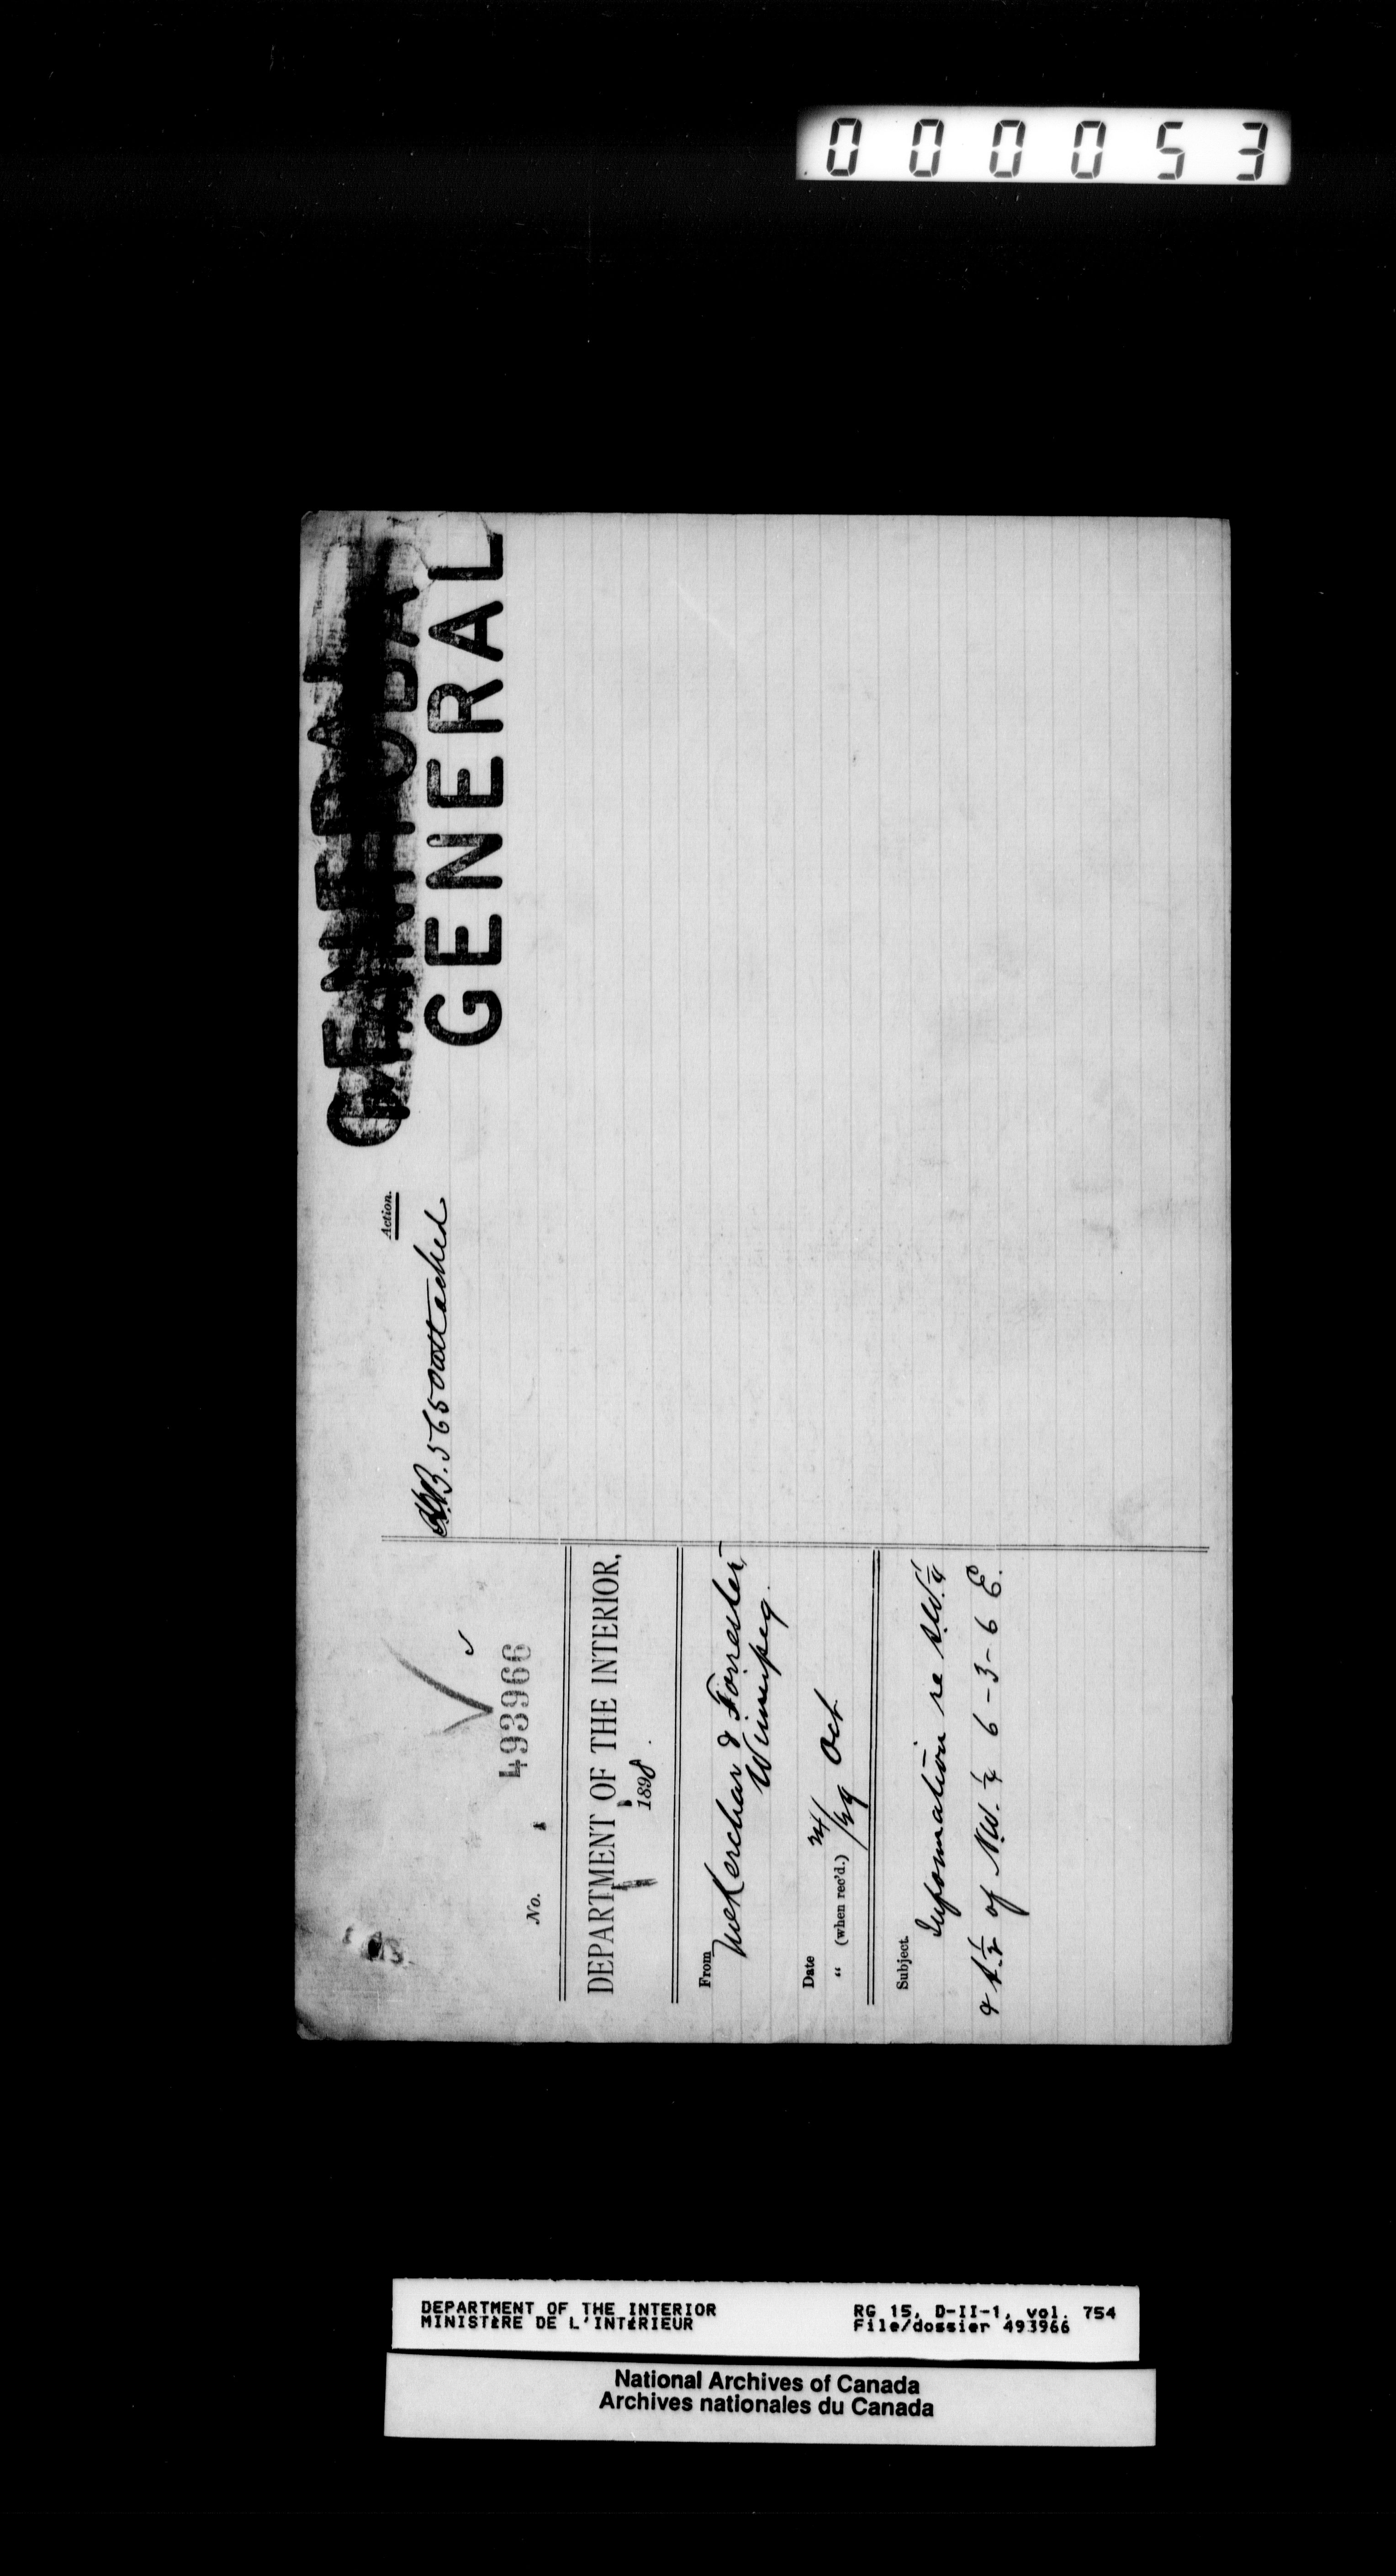 000053
GENERAL
GENERAL
Action.
H.B. 565 attached
493966
No.
DEPARTMENT OF THE INTERIOR,
1898.
From McKerchar & Forrester,
Winnipeg.
Date 24
" (when rec'd.) 29 Oct
Subject.
Information re S.W. 1/4
& S. 1/2 of N.W. 1/4 6-3-6 E.
DEPARTMENT OF THE INTERIOR
MINISTÈRE DE L'INTÉRIEUR
RG 15, D-II-1, vol. 754
File/dossier 493966
National Archives of Canada
Archives nationales du Canada